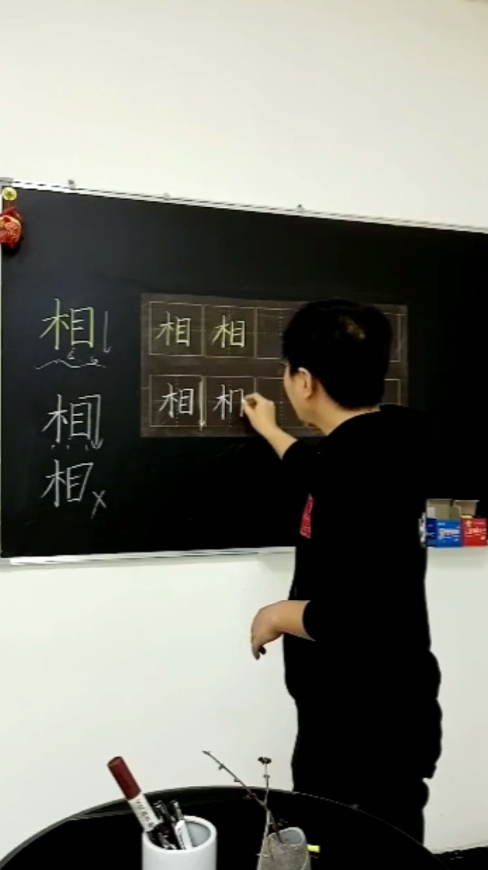 相
相 相
相
相 机
相 x